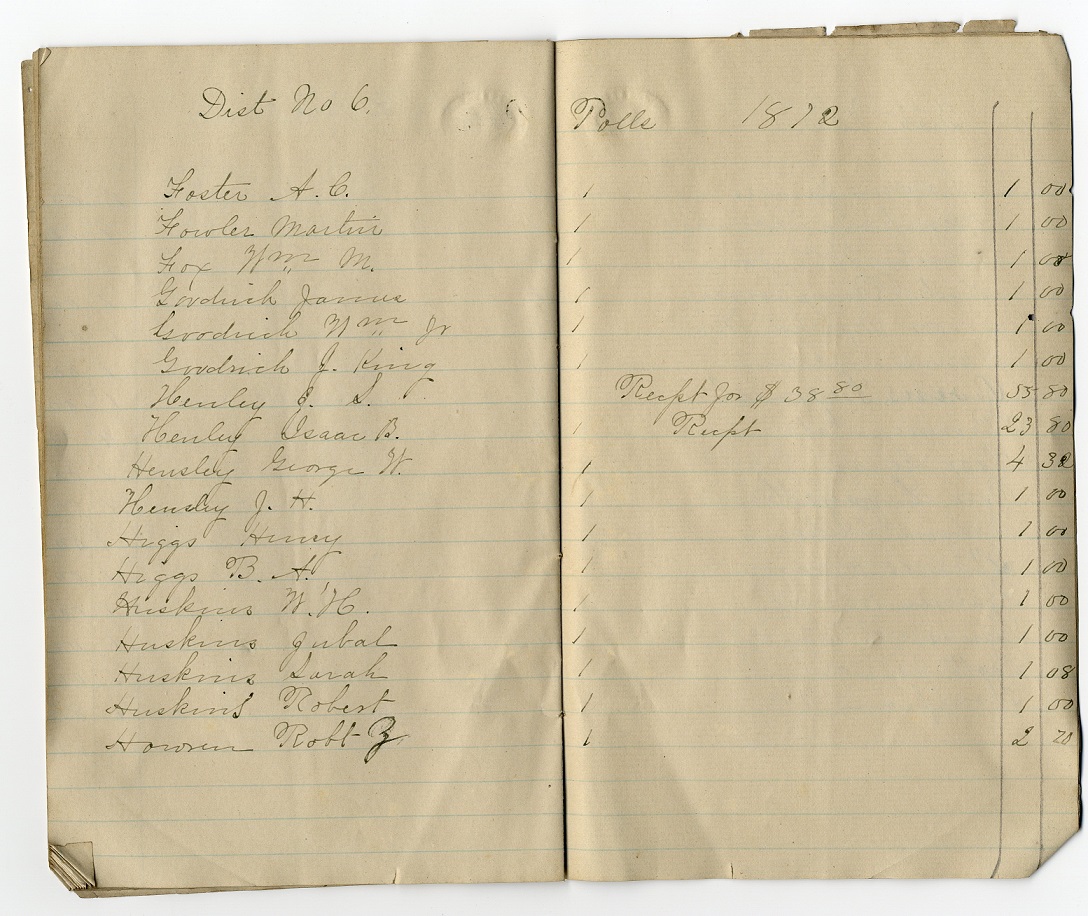 Dist No 6. Polls 1872
Foster A. C. 1 1 00
Fowler Martin 1 1 00
Fox Wm M. 1 1 08
Goodrich James 1 1 00
Goodrich Wm Jr 1 1 00
Goodrich J. King 1 1 00
Henley J. S. Recpt for $ 38 80 55 80
Henley Isaac B. 1 Recpt 23 80
Hensley George W. 1 4 32
Hensley J. H. 1 1 00
Higgs Henry 1 1 00
Higgs B. A. 1 1 00
Huskins W. H. 1 1 00
Huskins Jubal 1 1 00
Huskins Sarah 1 1 08
Huskins Robert 1 1 00
Howren Robt Z. 1 2 20